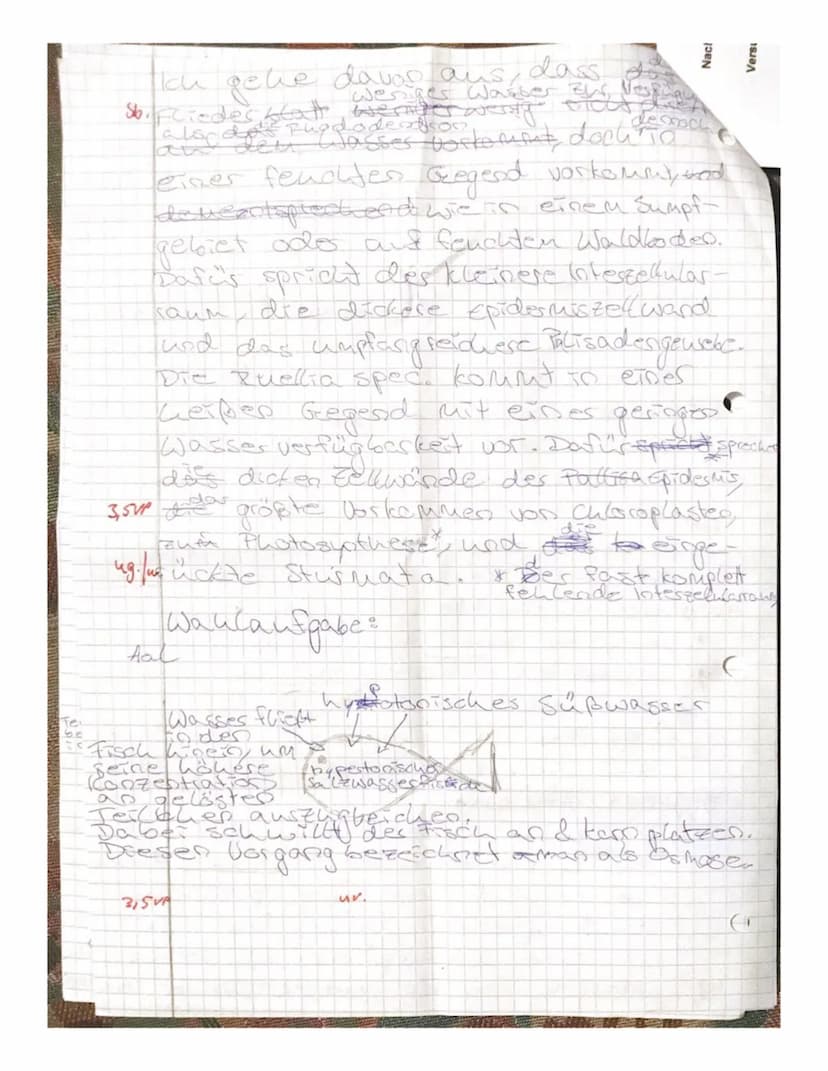 Nacl
Versu
Ich gehe davon aus, dass
weniges Wasser zur Verfügung
Sb.
Flieder
als Ruploderation
dennoch
an den Wasser vorkommt, doch in
einer feuchten Gegend vorkommt, und
dementsprechend wie in einem Sumpf-
gebiet oder auf feuchtem Waldboden.
Dafür spricht der kleinere Interzellular-
raum, die dickere Epidermiszellwand
und das umpfangreichere Palisadengewebe.
Die Ruellia spec. kommt in einer
heißen Gegend mit einer geringen
Wasserverfügbarkeit vor. Dafür spricht sprechen
die dicken Zellwände der Pallisa Epidermis,
3,5VP
die das größte Vorkommen von Chloroplasten,
zum Photosynthese*, und die einge-
ug./
ückte Sturmata. * Der fast komplett
fehlende Interzellularraum
Wahlaufgabe:
Aal
hypotonisches Süßwasser
Wasser fließt
in den
Fisch hinein, um
seine höhere
Konzentration
an gelösten
Teilchen auszugleichen.
hypertonischer
Salzwasserfisch
Dabei schwillt der Fisch an & kann platzen.
Diesen Vorgang bezeichnet man als Osmose.
3,5VP
uv.